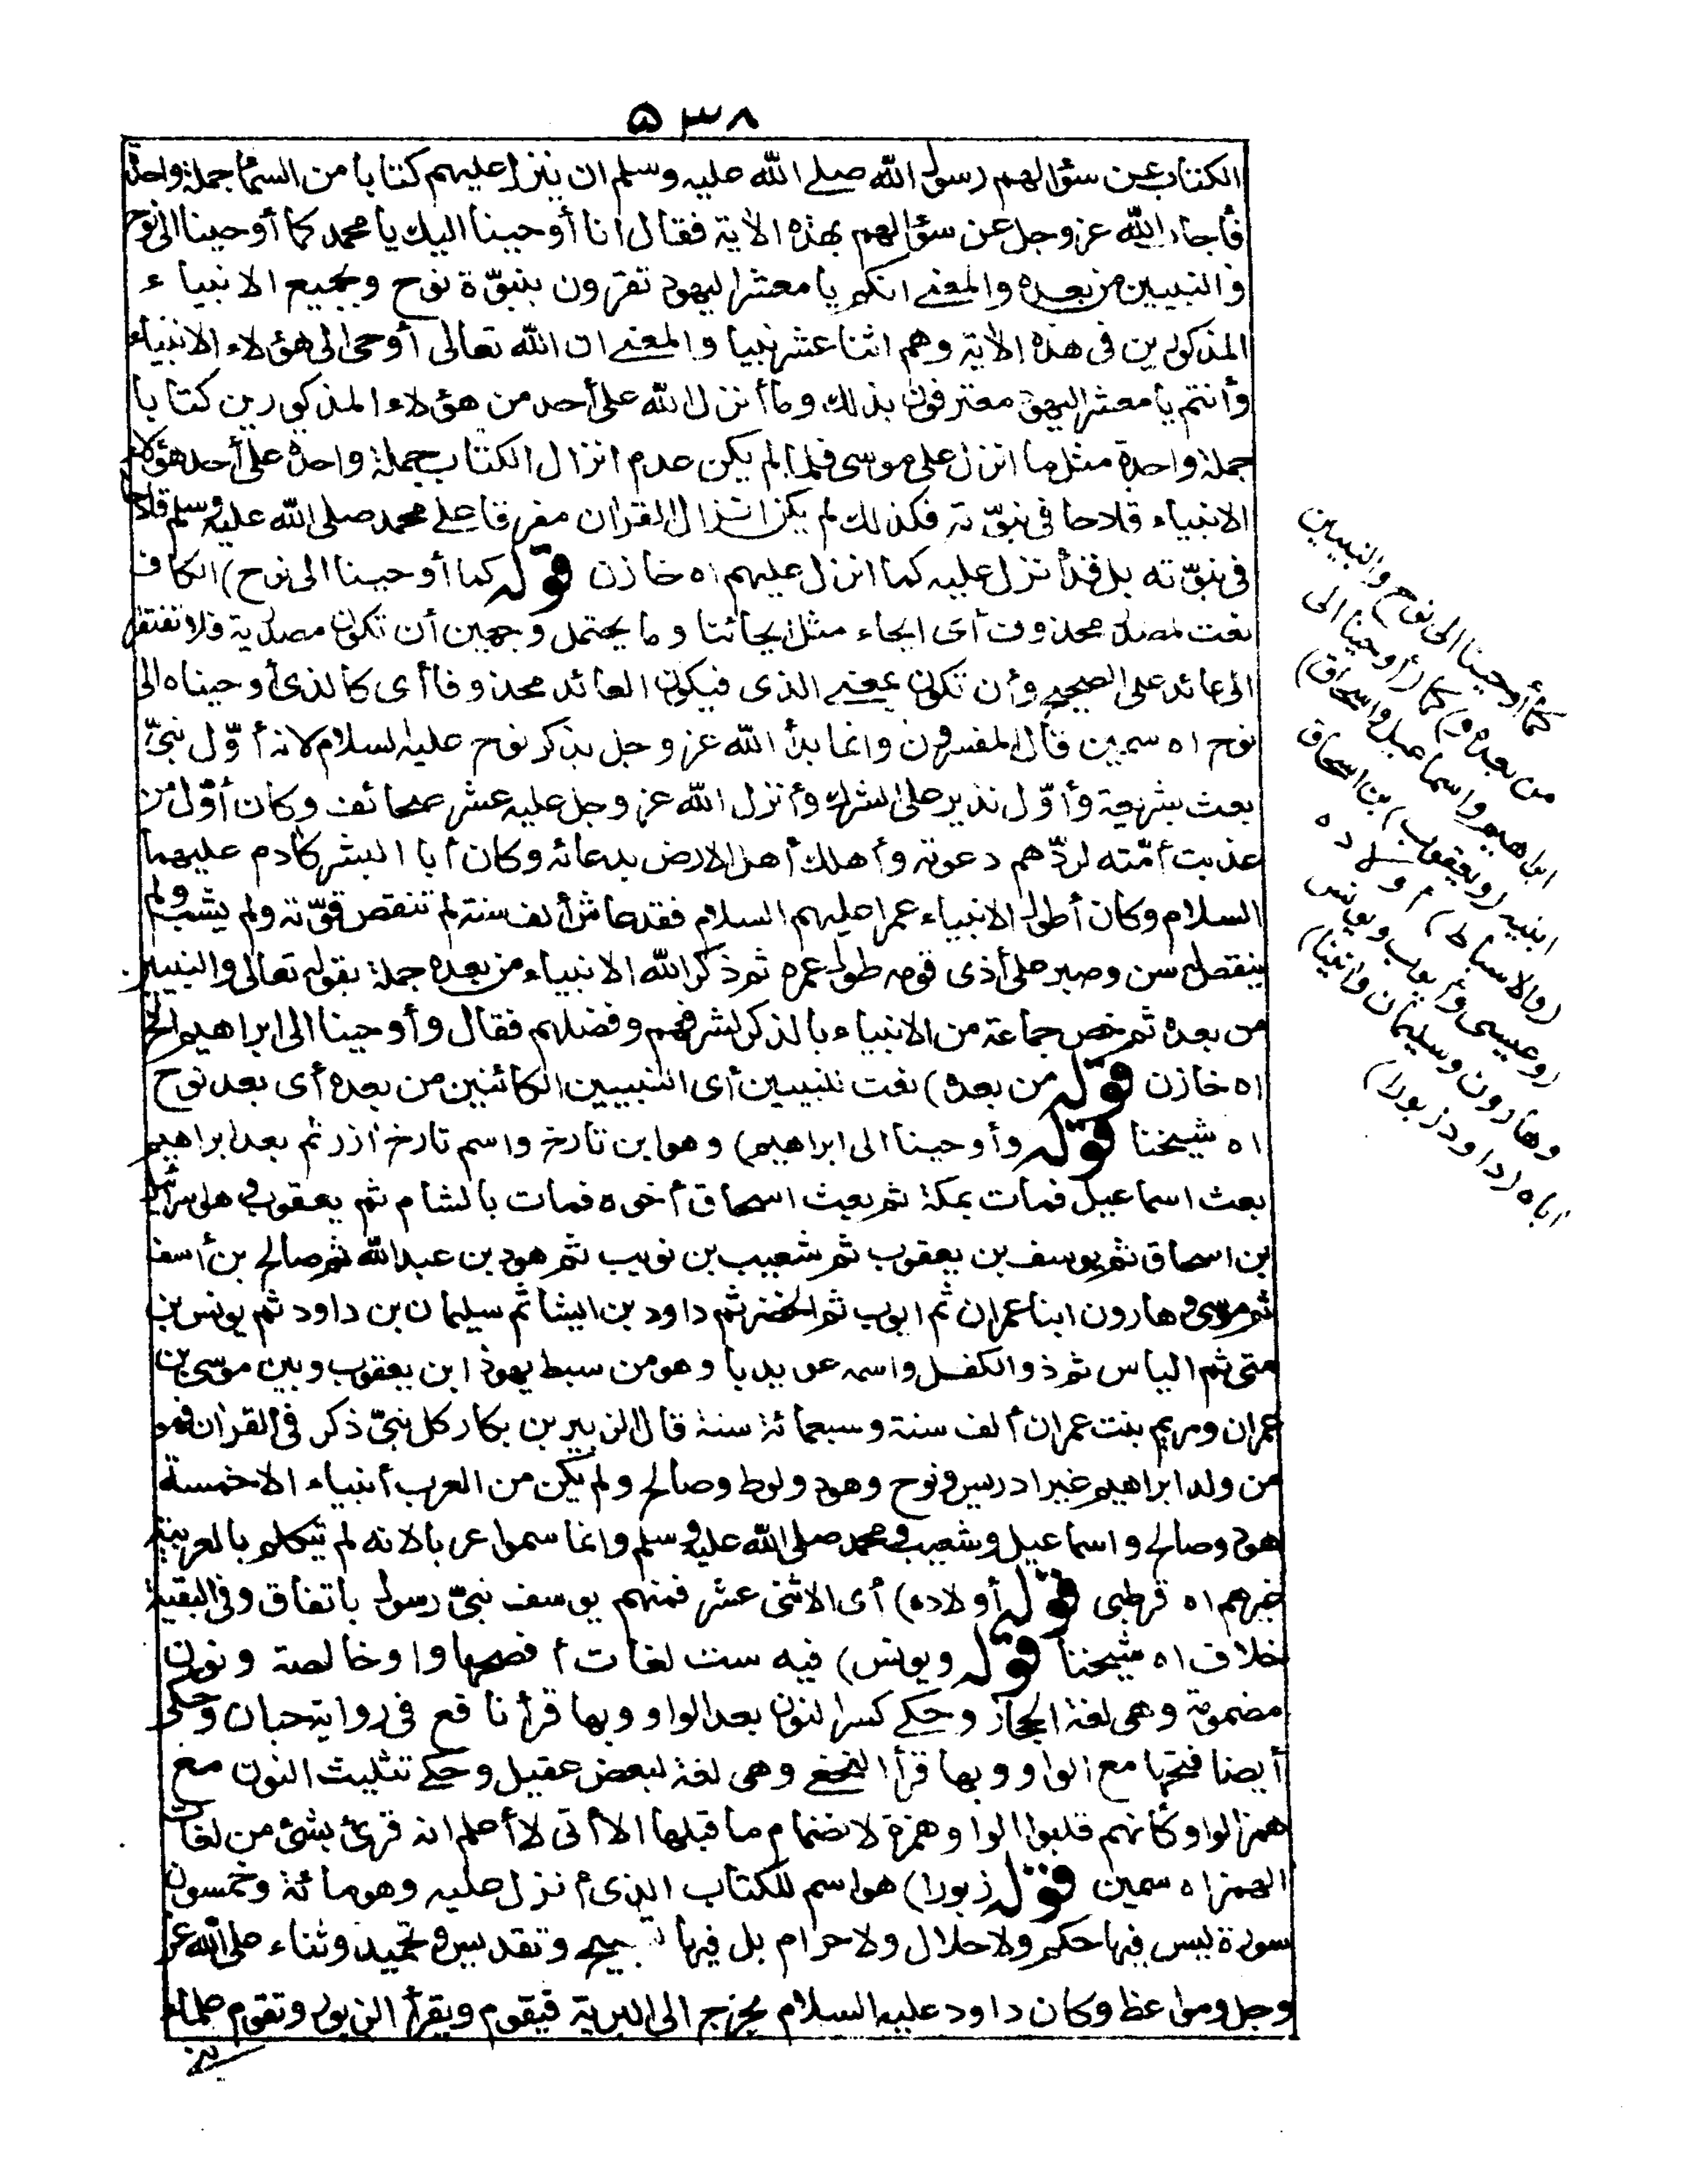 ٥٣٨
الكتاب عن سؤالهم رسول الله صلى الله عليه وسلم ان ينزل عليهم كتابا من السماء جملة واحدة
فأجاب الله عز وجل عن سؤالهم بهذه الآية فقال انا أوحينا اليك يا محمد كما أوحينا الى نوح
والنبيين من بعده والمعنى انكم يا معشر اليهود تقرون بنبوّة نوح وبجميع الانبياء
المذكورين فى هذه الآية وهم اثنا عشر نبيا والمعنى ان الله تعالى أوحى الى هؤلاء الانبياء
وأنتم يا معشر اليهود معترفون بذلك وما أنزل الله على أحد من هؤلاء المذكورين كتابا
جملة واحدة مثل ما انزل على موسى فلما لم يكن عدم انزال الكتاب جملة واحدة على أحد هؤلاء
الانبياء قادحا فى نبوّته فكذلك لم يكن انزال القرآن مفرقا على محمد صلى الله عليه وسلم قادحا
فى نبوّته بل قد أنزل عليه كما انزل عليهم اه خازن قوله كما أوحينا الى نوح) الكاف
نعت لمصدر محذوف أى ايحاء مثل ايحائنا وما يحتمل وجهين أن تكون مصدرية فلا تفتقر
الى عائد على الصحيح وأن تكون بمعنى الذى فيكون العائد محذوفا أى كالذى أوحيناه الى
نوح اه سمين قال المفسرون وانما بدأ الله عز وجل بذكر نوح عليه السلام لانه أوّل نبىّ
بعث بشريعة وأوّل نذير على الشرك وأنزل الله عز وجل عليه عشر صحائف وكان أوّل من
عذبت أمّته لردّهم دعوته وأهلك أهل الارض بدعائه وكان أبا البشر كآدم عليهما
السلام وكان أطول الانبياء عمرا عليهم السلام فقد عاش ألف سنة لم تنقص قوّته ولم يشب ولم
ينقص له سن وصبر على أذى قومه طول عمره ثم ذكر الله الانبياء من بعده جملة بقوله تعالى والنبيين
من بعده ثم خص جماعة من الانبياء بالذكر لشرفهم وفضلهم فقال وأوحينا الى ابراهيم الخ
اه خازن قوله من بعده) نعت للنبيين أى النبيين الكائنين من بعده أى بعد نوح
اه شيخنا قوله وأوحينا الى ابراهيم) وهو ابن تارخ واسم تارخ آزر ثم بعد ابراهيم
بعث اسماعيل فمات بمكة ثم بعث اسحاق أخوه فمات بالشام ثم يعقوب وهو اسرائيل
بن اسحاق ثم يوسف بن يعقوب ثم شعيب بن نويب ثم هود بن عبدالله ثم صالح بن أسف
ثم موسى وهارون ابنا عمران ثم ايوب ثم الخضر ثم داود بن ايشا ثم سليمان بن داود ثم يونس بن
متى ثم الياس ثم ذو الكفل واسمه عويديا وهو من سبط يهوذا بن يعقوب وبين موسى بن
عمران ومريم بنت عمران ألف سنة وسبعمائة سنة قال الزبير بن بكار كل نبىّ ذكر فى القرآن فهو
من ولد ابراهيم غير ادريس ونوح وهود ولوط وصالح ولم يكن من العرب أنبياء الا خمسة
هود وصالح واسماعيل وشعيب ومحمد صلى الله عليه وسلم وانما سموا عربا لانه لم يتكلم بالعربية
غيرهم اه قرطبى قوله أولاده) أى الاثنى عشر فمنهم يوسف نبىّ رسول باتفاق وفى البقية
خلاف اه شيخنا قوله ويونس) فيه ست لغات أفصحها واو خالصة ونون
مضمومة وهى لغة الحجاز وحكى كسر النون بعد الواو وبها قرأ نافع فى رواية حبان وحكى
أيضا فتحها مع الواو وبها قرأ النخعى وهى لغة لبعض عقيل وحكى تثليث النون مع
همز الواو كأنهم قلبوا الواو همزة لانضمام ما قبلها الا أنى لا أعلم انه قرئ بشئ من لغات
الهمز اه سمين قوله زبورا) هو اسم للكتاب الذى أنزل عليه وهو مائة وخمسون
سورة ليس فيها حكم ولا حلال ولا حرام بل فيها تسبيح وتقديس وتحميد وثناء على الله عز
وجل ومواعظ وكان داود عليه السلام يخرج الى البرية فيقوم ويقرأ الزبور وتقوم علماء
كما أوحينا الى نوح والنبيين
من بعده و) كما (أوحينا الى
ابراهيم واسماعيل واسحاق)
ابنيه (ويعقوب) بن اسحاق
(والاسباط) أولاده
(وعيسى وأيوب ويونس
وهارون وسليمان وآتينا)
أباه (داود زبورا)